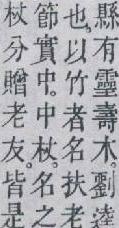 縣有靈壽木。劉逵
也。以竹者名扶老
節實中。中杖。名之
杖分贈老友。皆是